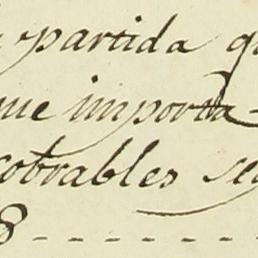 partida qu
ue importa
cobrables se
8 - - - - - - -